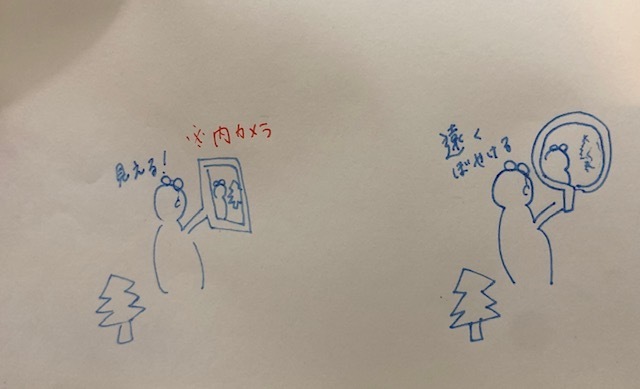 ※内カメラ
見える!
遠く
ぼやける